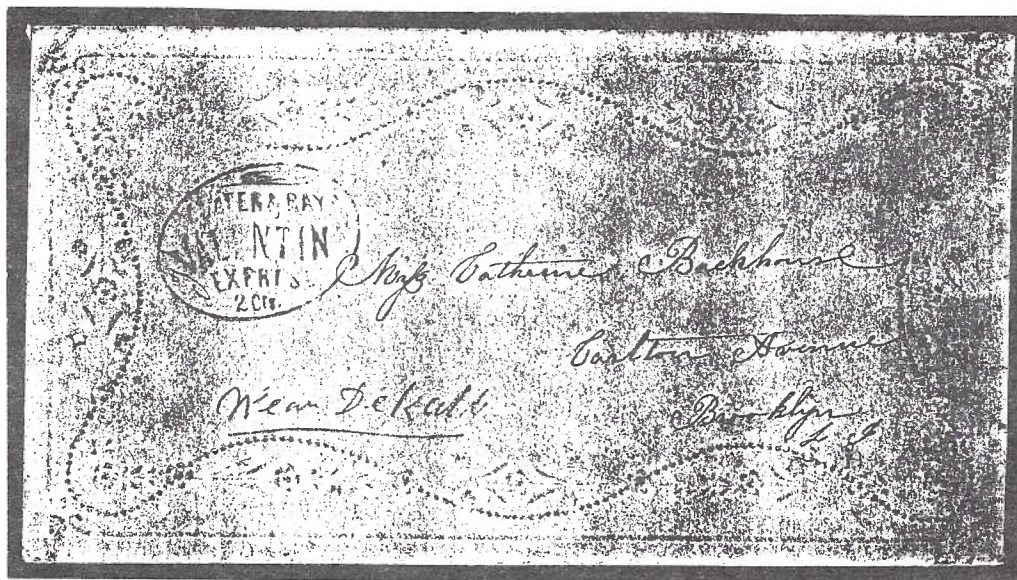 VALENTIN
EXPRES
2 Cts.
Miss Catherine Backhouse
Carlton Avenue
Near DeKalb
Brooklyn
L I